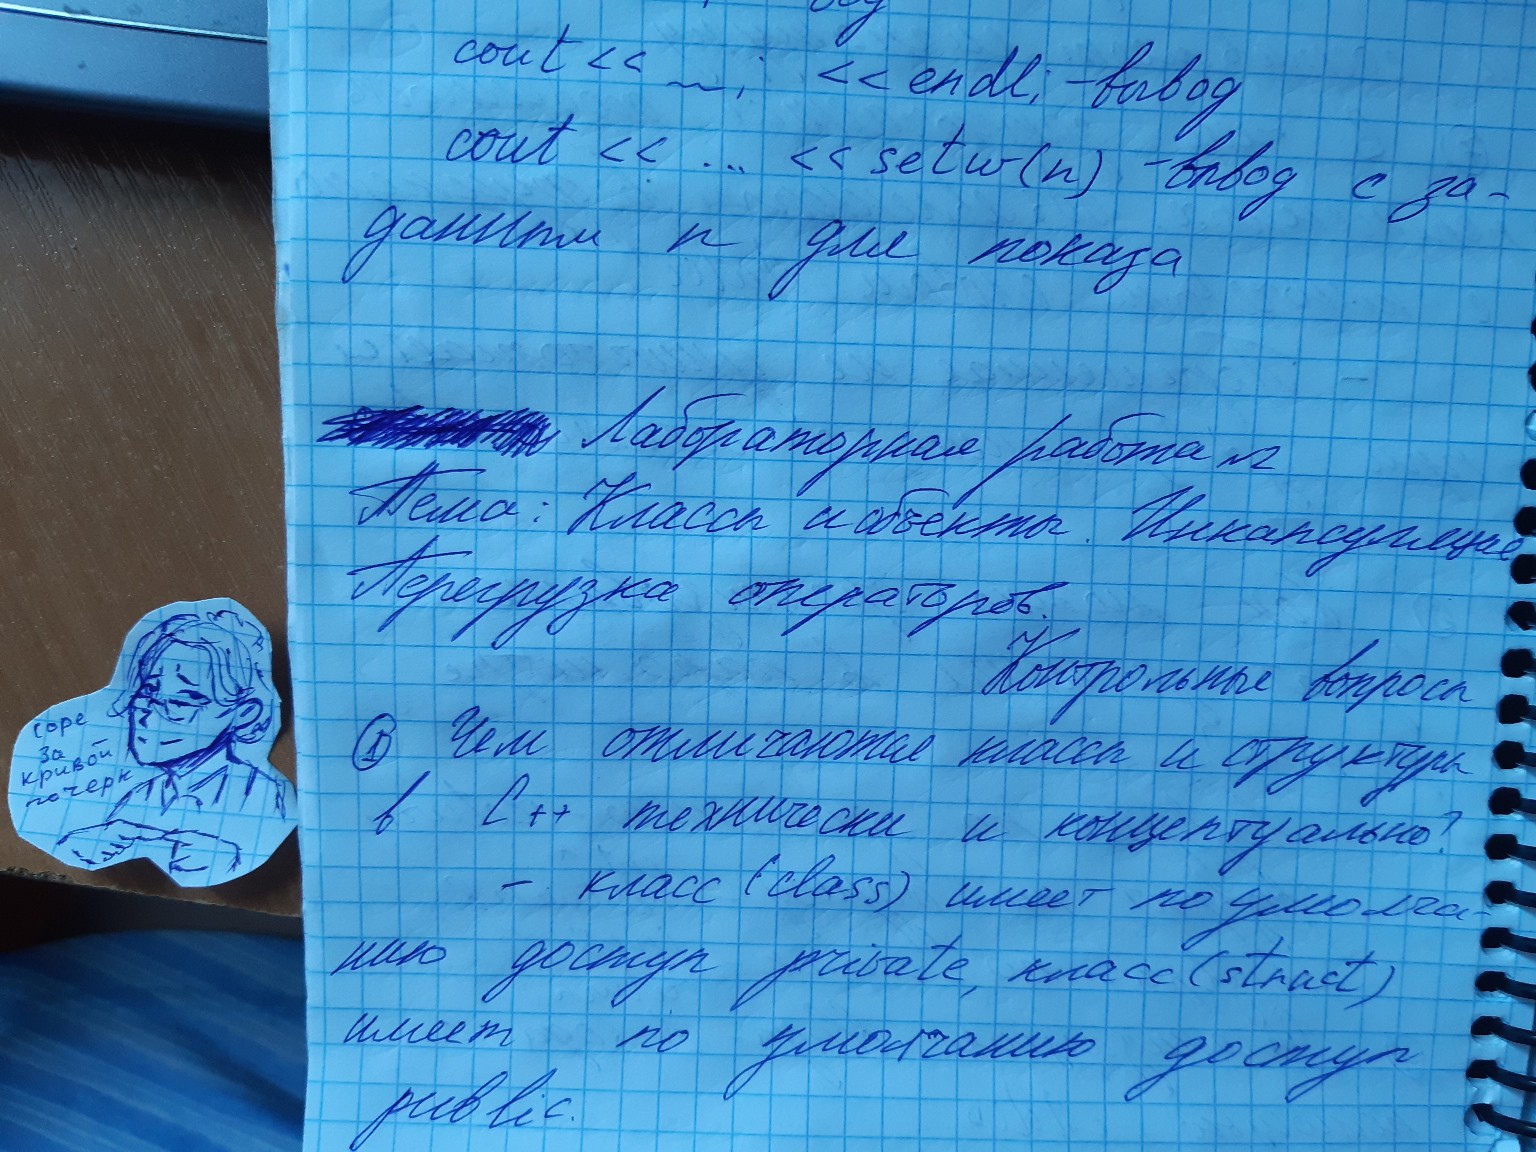 cout << ~ ; << endl; - вывод
cout << ... << setw(n) - вывод с за-
данным n для показа
Лабораторная работа №2
Тема: Классы и объекты. Инкапсуляция
Перегрузка операторов.
Контрольные вопросы
① Чем отличаются классы и структуры
в C++ технически и концептуально?
- класс (class) имеет по умолча-
нию доступ private, класс (struct)
имеет по умолчанию доступ
public.
соре
за
кривой
почерк